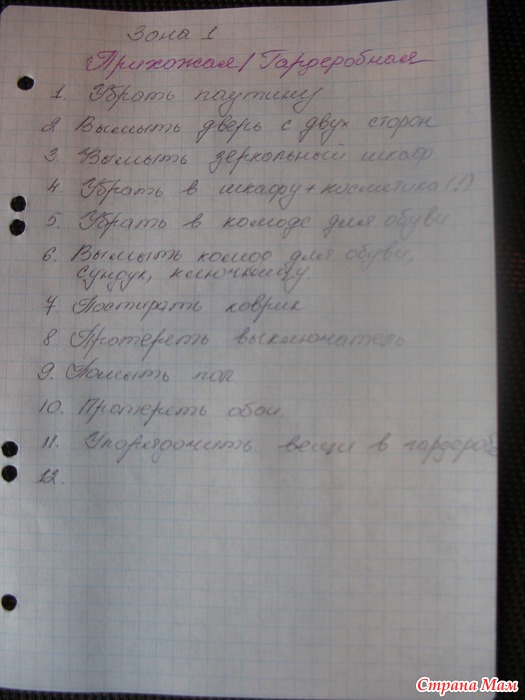 Зона 1
Прихожая/Гардеробная
1. Убрать паутину
2. Вымыть дверь с двух сторон
3. Вымыть зеркольный шкаф
4 Убрать в шкафу+косметика (!)
5. Убрать в комоде для обуви
6. Вымыть комод для обуви,
сундук, ключницу.
7. Постирать коврик
8 Протереть выключатель
9. Помыть пол
10. Протереть обои.
11. Упорядочить вещи в гардероб
12.
Страна Мам